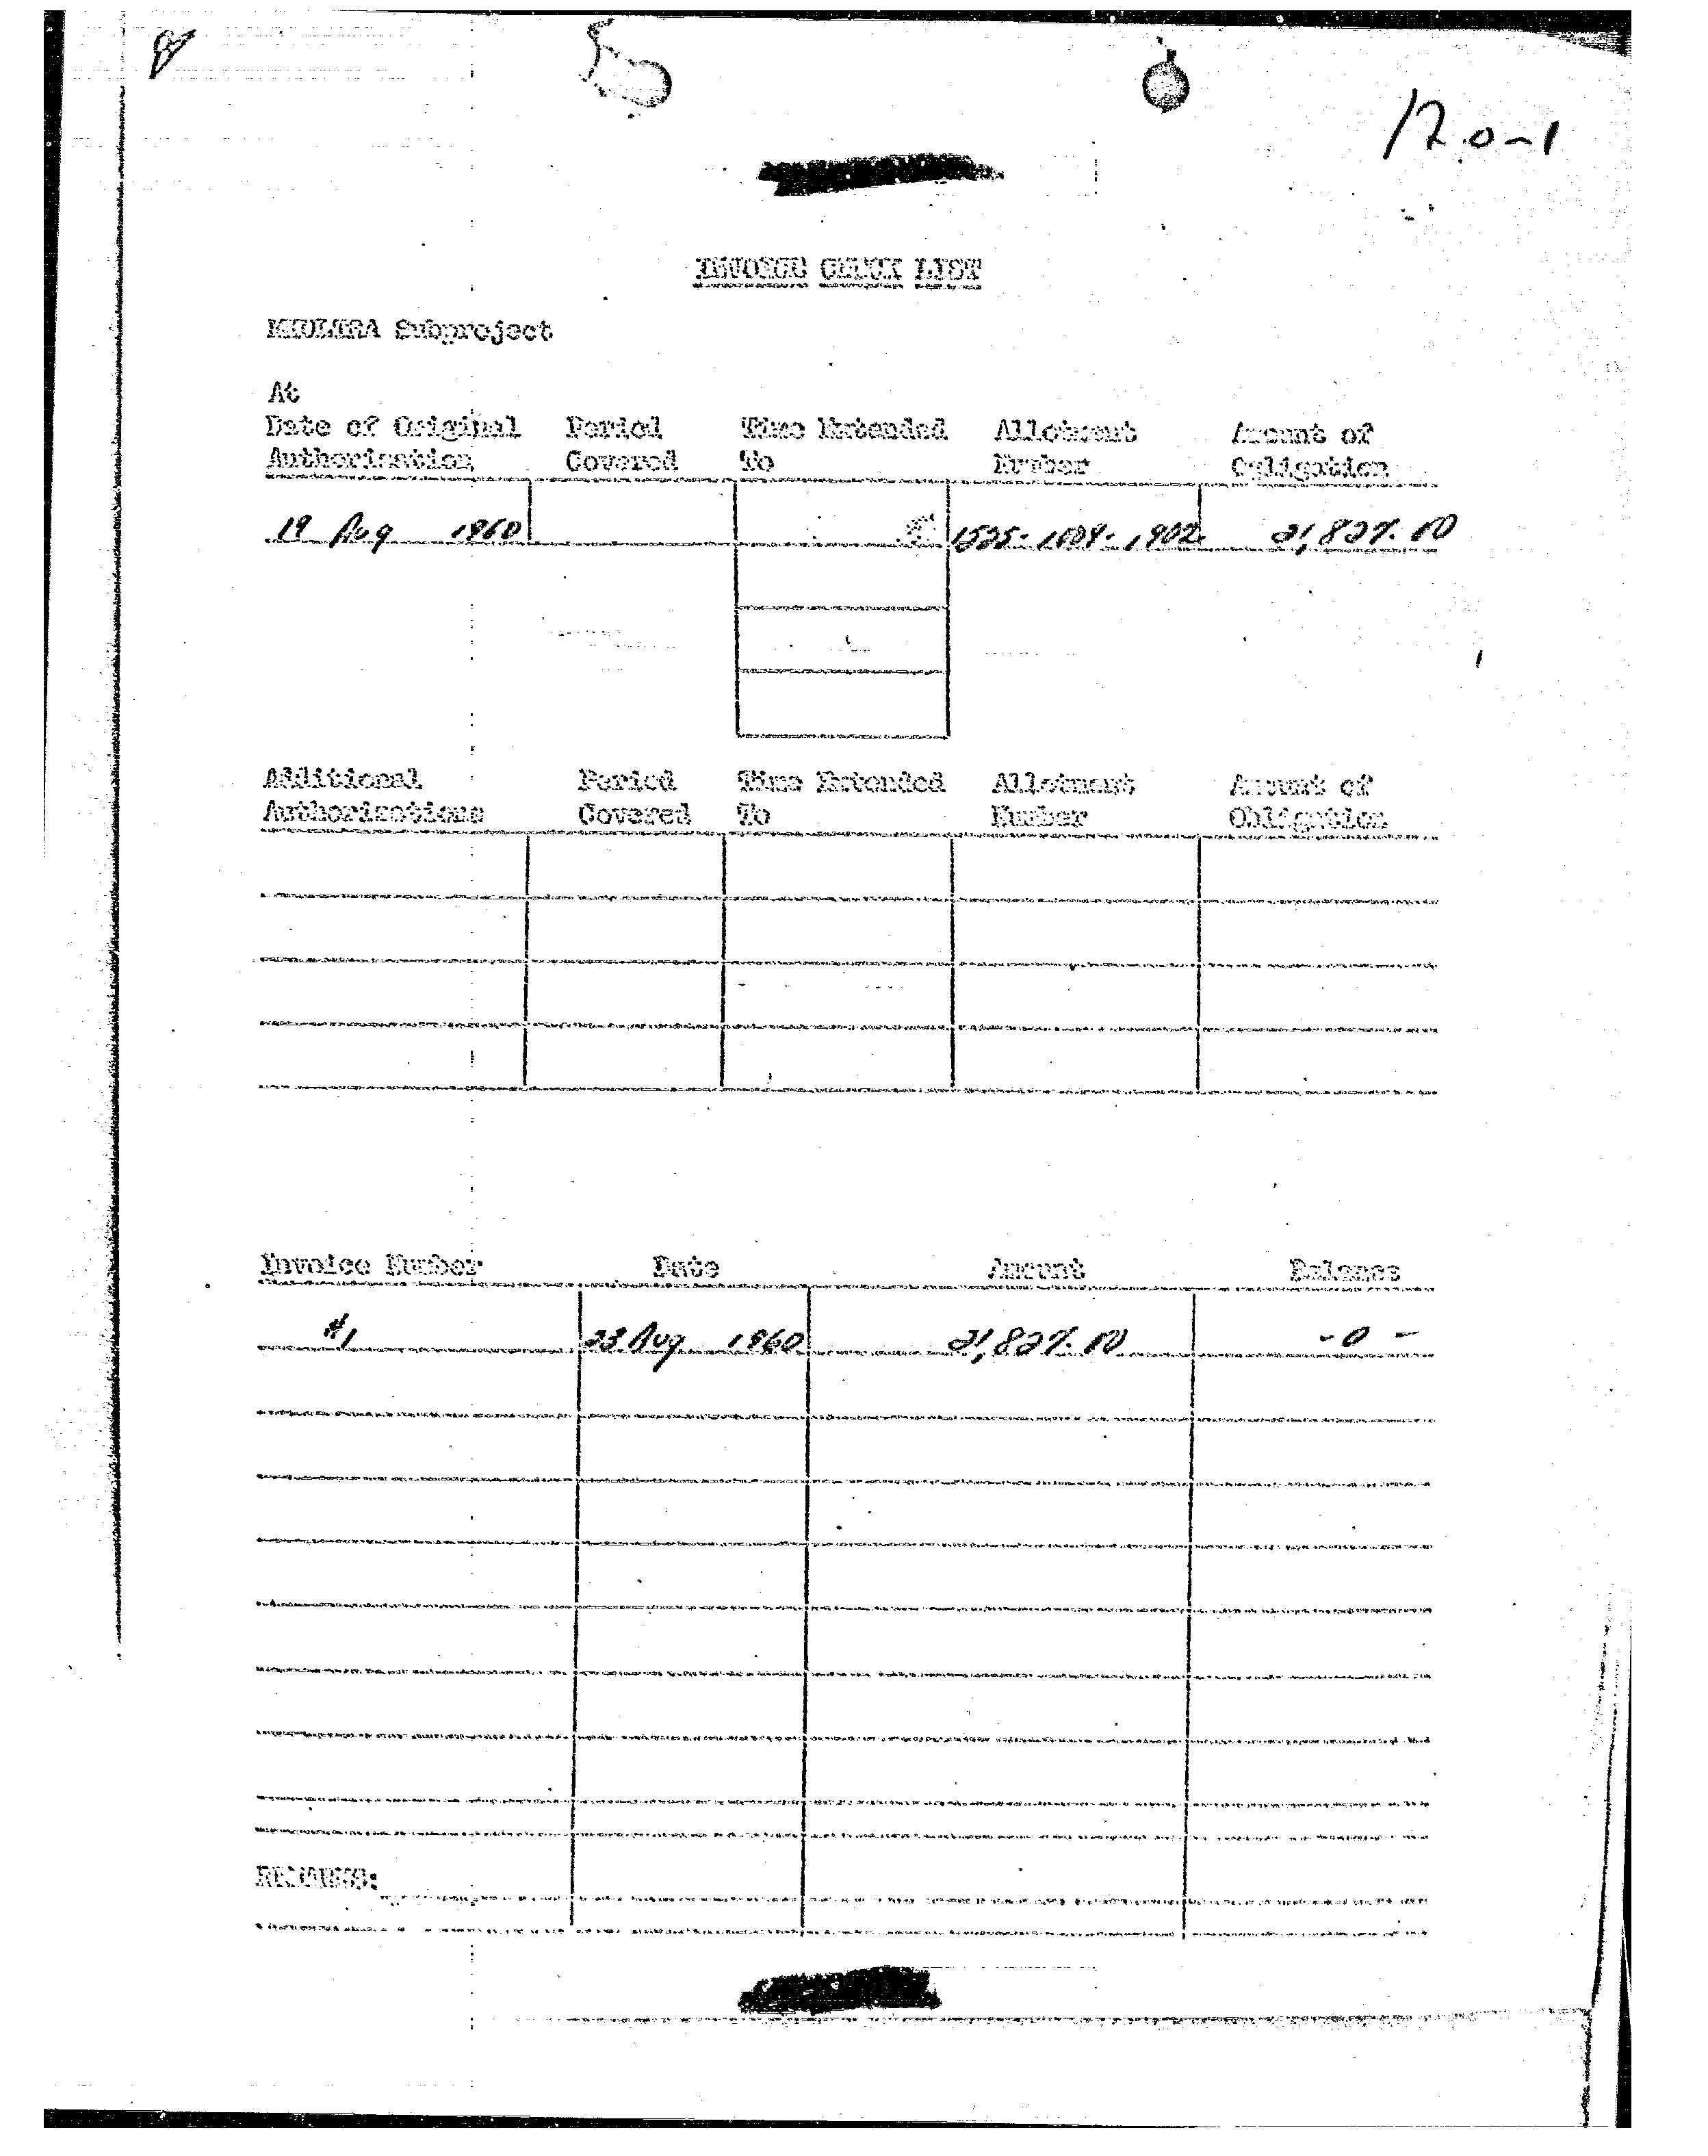 INVOICE CHECK LIST
MKULTRA Subproject
At
Date of Original Period Time Extended Allotment Amount of
Authorization Covered To Number Obligation
19 Aug 1960 1525-1009-1902 21,827.00
Additional Period Time Extended Allotment Amount of
Authorizations Covered To Number Obligation
Invoice Number Date Amount Balance
#1 23 Aug 1960 21,827.00 -0-
REMARKS: